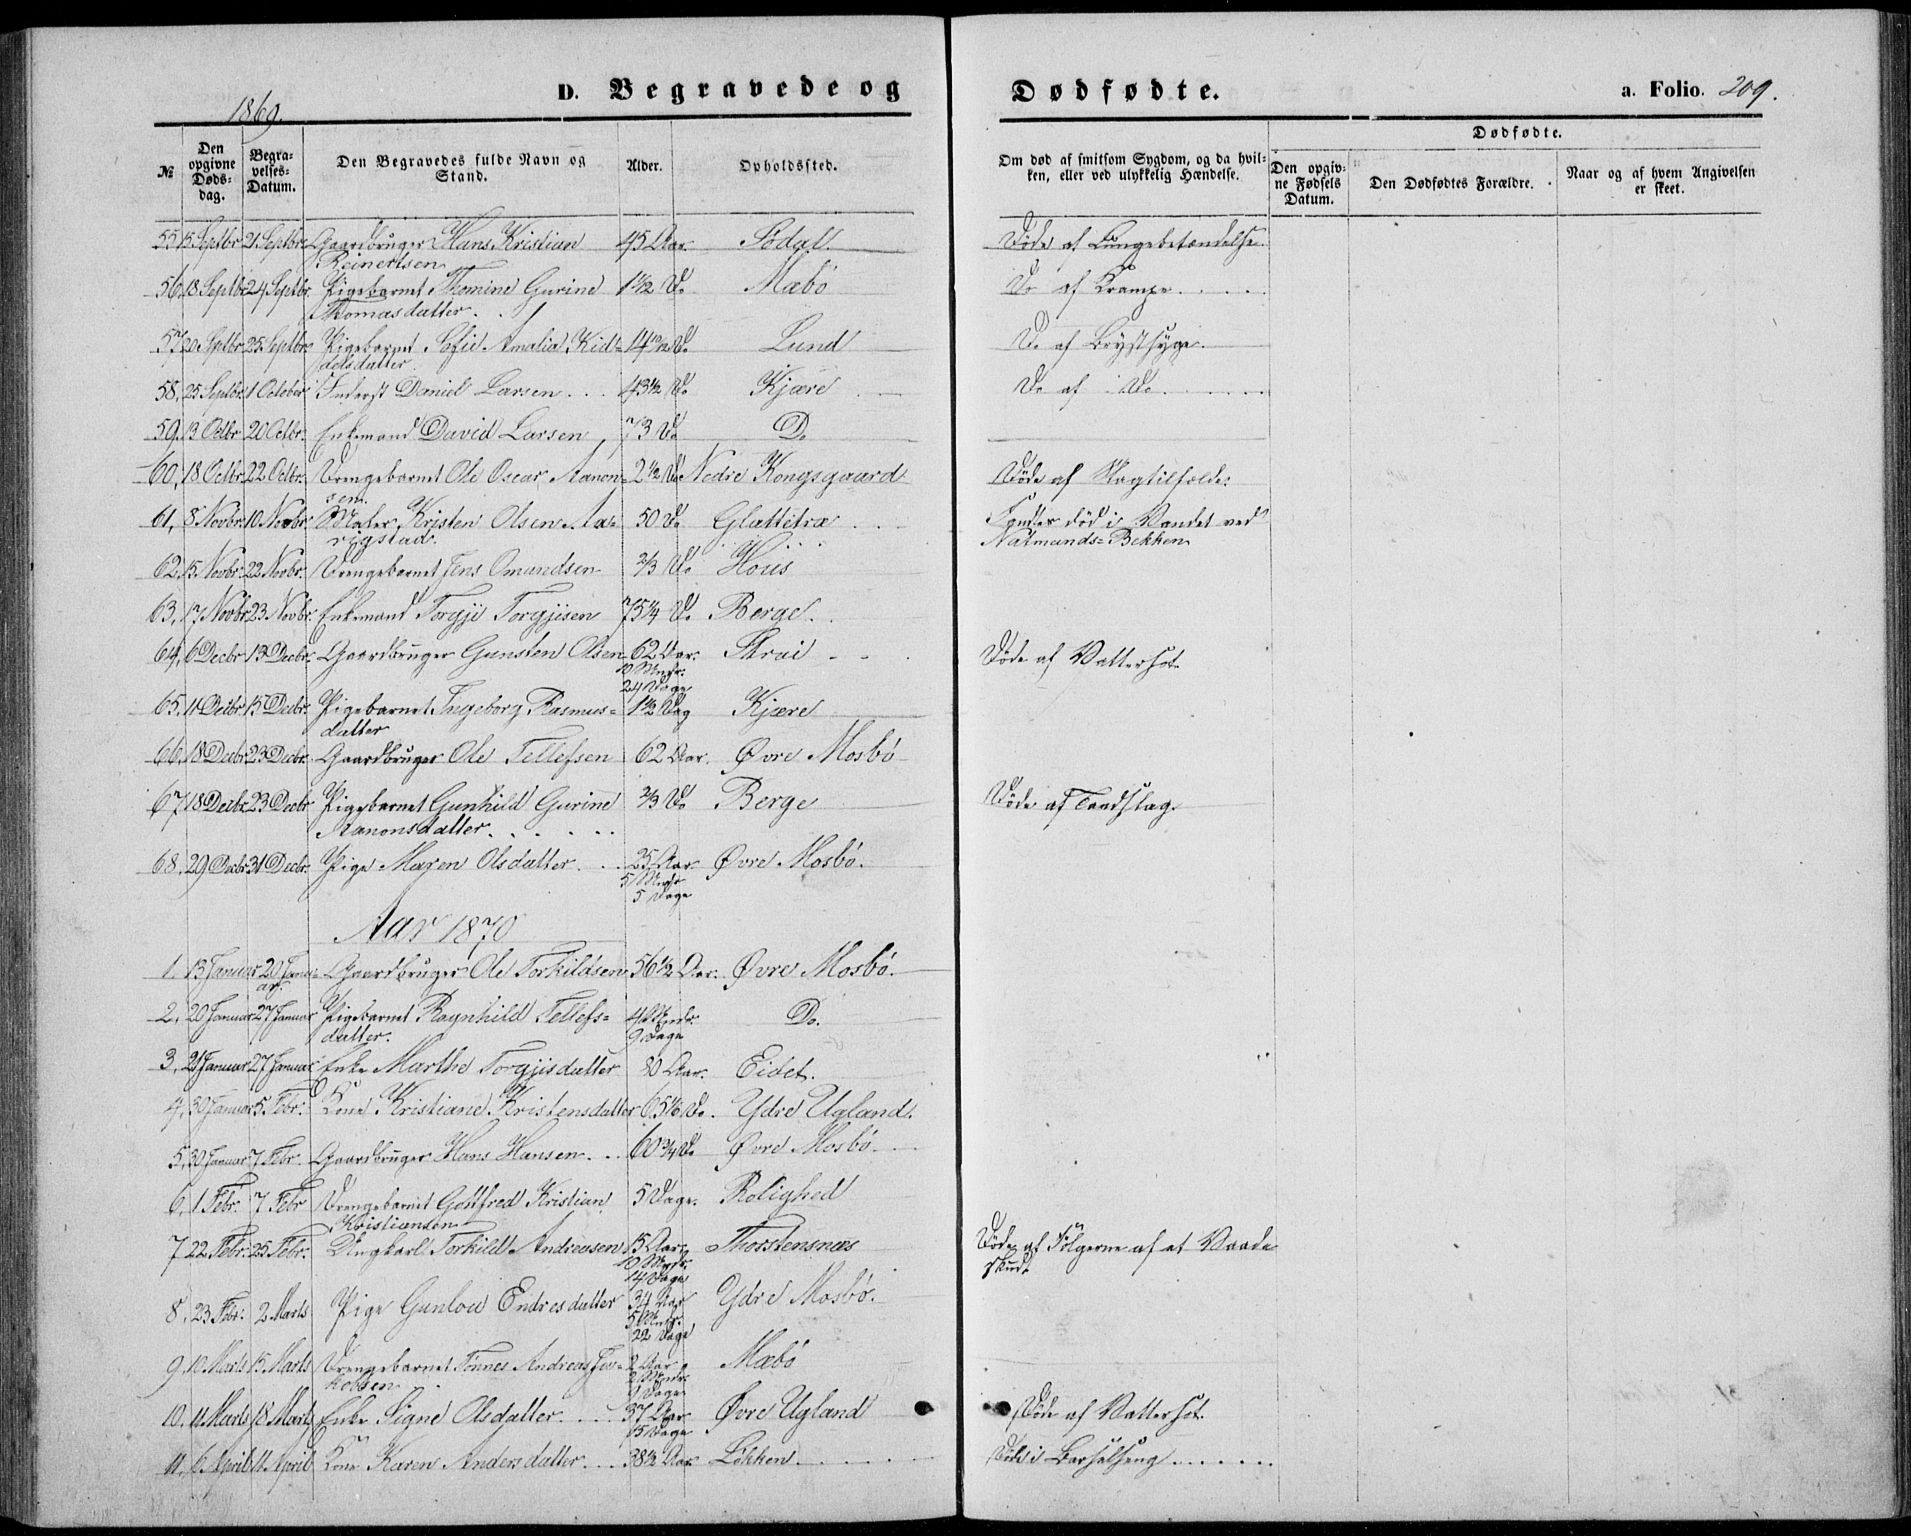 D. Begravede og Dødfødte. a. Folio. 209.
1869.
№ Den opgivne Døds-dag. Begra-velses-Datum. Den Begravedes fulde Navn og Stand. Alder. Opholdssted. Om død af smitsom Sygdom, og da hvil-ken, eller ved ulykkelig Hændelse. Dødfødte. Den opgiv-ne Fødsels Datum. Den Dødfødtes Forældre. Naar og af hvem Angivelsen er skeet.
55 15 Septbr 21 Septbr Gaardbruger Hans Kristian 45 Aar. Södal. Döde af Lungebetændelse.
Reinertsen
56, 18 Septbr 24 Septbr. Pigebarnet Thomine Gurine 1 1/2 Do Mæbö Do af Krampe
Thomasdatter
57 20 Septbr 25 Septbr Pigebarnet Sofie Amalia Kid= Do Lund Do af Brystsyge.
delsdatter.
58, 25 Septbr 1 October Inderst Daniel Larsen 43 1/2 Do Kjære Do af Do
59, 13 Octbr 20 Octbr. Enkemand David Larsen 73 Do Do
60, 18 Octbr. 22 Octbr. Drengebarnet Ole Oscar Aanon= 2 1/2 Do Nedre Kongsgaard Döde af Slagtilfælde.
sen.
61, 8 Novbr. 10 Novbr. Maler Kristen Olsen Aa= 50 Do Glattetræ Fandtes död i Vandet ved
rigstad. Natmands=Bekken
62, 15 Novbr. 22 Novbr. Drengebarnet Jens Omundsen 2/3 Do Höus
63, 17 Novbr 23 Novbr. Enkemand Torgje Torgjisen 75 1/4 Do Berge.
64, 6 Decbr 13 Decbr. Gaardbruger Gunsten Olsen 62 Aar. Strai Döde af Vattersot.
10 Mndr.
24 Dage
65, 11 Decbr 15 Decbr. Pigebarnet Ingeborg Rasmus= 1 1/2 Dag Kjære
datter
66, 18 Decbr. 23 Decbr. Gaardbruger Ole Tellefsen 62 Aar. Øvre Mosbö
67, 18 Decbr. 23 Decbr Pigebarnet Gunhild Gurine 2/3 Do Berge Döde af Tandslag.
Aanonsdatter.
68, 29 Decbr 31 Decbr. Pige Maren Olsdatter. 25 Aar. Øvre Mosbö.
5 Mndr
5 Dage
Aar 1870
1, 13 Januar 20 Janu= Gaardbruger Ole Torkildsen 56 1/2 Aar. Øvre Mosbö.
ar.
2, 20 Januar 27 Januar Pigebarnet Ragnhild Tellefs= 4 Mndr. Do.
datter. 9 Dage
3, 21 Januar 27 Januar Enke Marthe Torgjisdatter 80 Aar. Eidet.
4, 30 Januar 5. Febr. Kone Kristiane Kristensdatter 65 1/6 Do. Ydre Ugland.
5, 30 Januar 7 Febr. Gaardbruger Hans Hansen 60 3/4 Do Øvre Mosbö.
6, 1 Febr. 7 Febr Drengebarnet Gottfred Kristian 5 Dage. Rolighed
Kristiansen
7 22 Febr. 25 Febr. Ungkarl Torkild Andreasen 15 Aar. Thorstensnæs Döde af Fölgerne af et Vaade
10 Mndr. skud.
14 Dage
8, 23 Febr. 2 Marts Pige Gunlou Endresdatter 34 Aar Ydre Mosbö.
5 Mndr.
22 Dage
9, 10 Marts 15 Marts Drengebarnet Tönnes Andreas Ja= 2 Aar Mæbö
kobsen 2 Mndr.
9 Dage
10, 11 Marts 18 Marts Enke Signe Olsdatter. 37 Aar Øvre Ugland Döde af Vattersot.
15 Dage
11, 6 April 11 April Kone Karen Andersdatter 38 1/2 Aar Løkken Döde i Barselseng